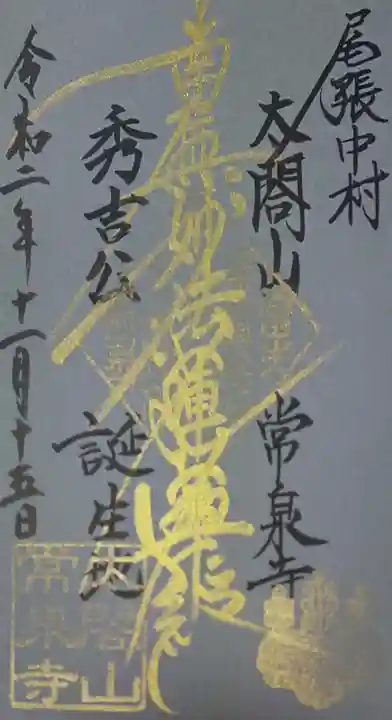 尾張中村
太閤山 常泉寺
南無妙法蓮華経
秀吉公 誕生地
令和二年十一月十五日
太閤山
常泉寺